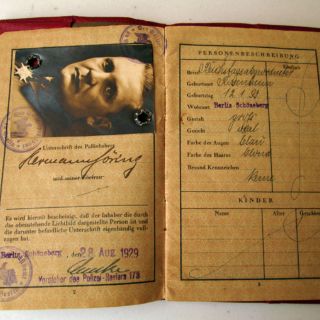 Unterschrift des Paßinhabers
Hermann Göring
und seiner Ehefrau
Es wird hiermit bescheinigt, daß der Inhaber die durch
das obenstehende Lichtbild dargestellte Person ist und
die darunter befindliche Unterschrift eigenhändig voll-
zogen hat.
Berlin-Schöneberg, den 28 Aug 1929
Vorsteher des Polizei-Reviers 173
2
PERSONENBESCHREIBUNG
Ehefrau
Beruf Reichstagsabgeordneter
Geburtsort Rosenheim
Geburtstag 12.1.93
Wohnort Berlin-Schöneberg
Gestalt groß
Gesicht oval
Farbe der Augen blau
Farbe des Haares blond
Besond. Kennzeichen
keine
KINDER
Name Alter Geschlecht
3